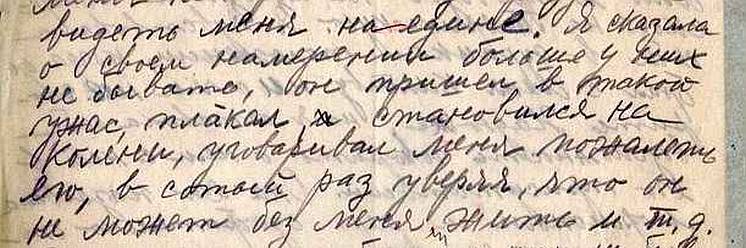 видеть меня на едине. Я сказала
о своем намерении больше у них
не бывать, он пришел в такой
ужас, плакал, становился на
колени, уговаривал меня пожалеть
его, в сотый раз уверяя, что он
не может без меня жить и т. д.